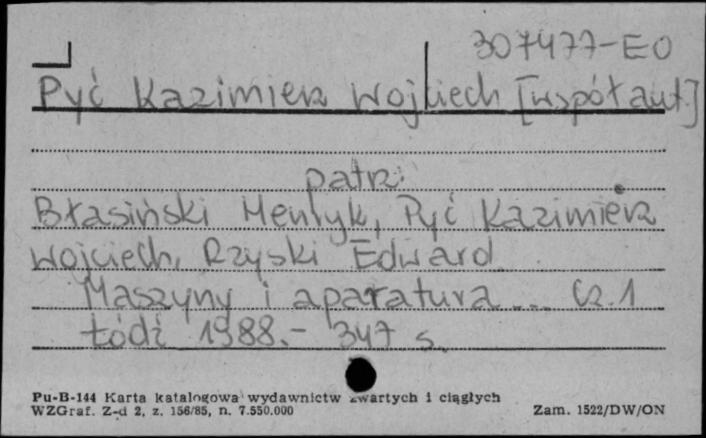 307477-EO
Pyć Kazimierz Wojciech [współaut.]
patrz:
Błasiński Henryk, Pyć Kazimierz
Wojciech, Rzyski Edward
Maszyny i aparatura... Cz. 1
Łódź 1988.- 347 s.
Pu-B-144 Karta katalogowa wydawnictw zwartych i ciągłych
WZGraf. Z-d 2, z. 156/85, n. 7.550.000
Zam. 1522/DW/ON